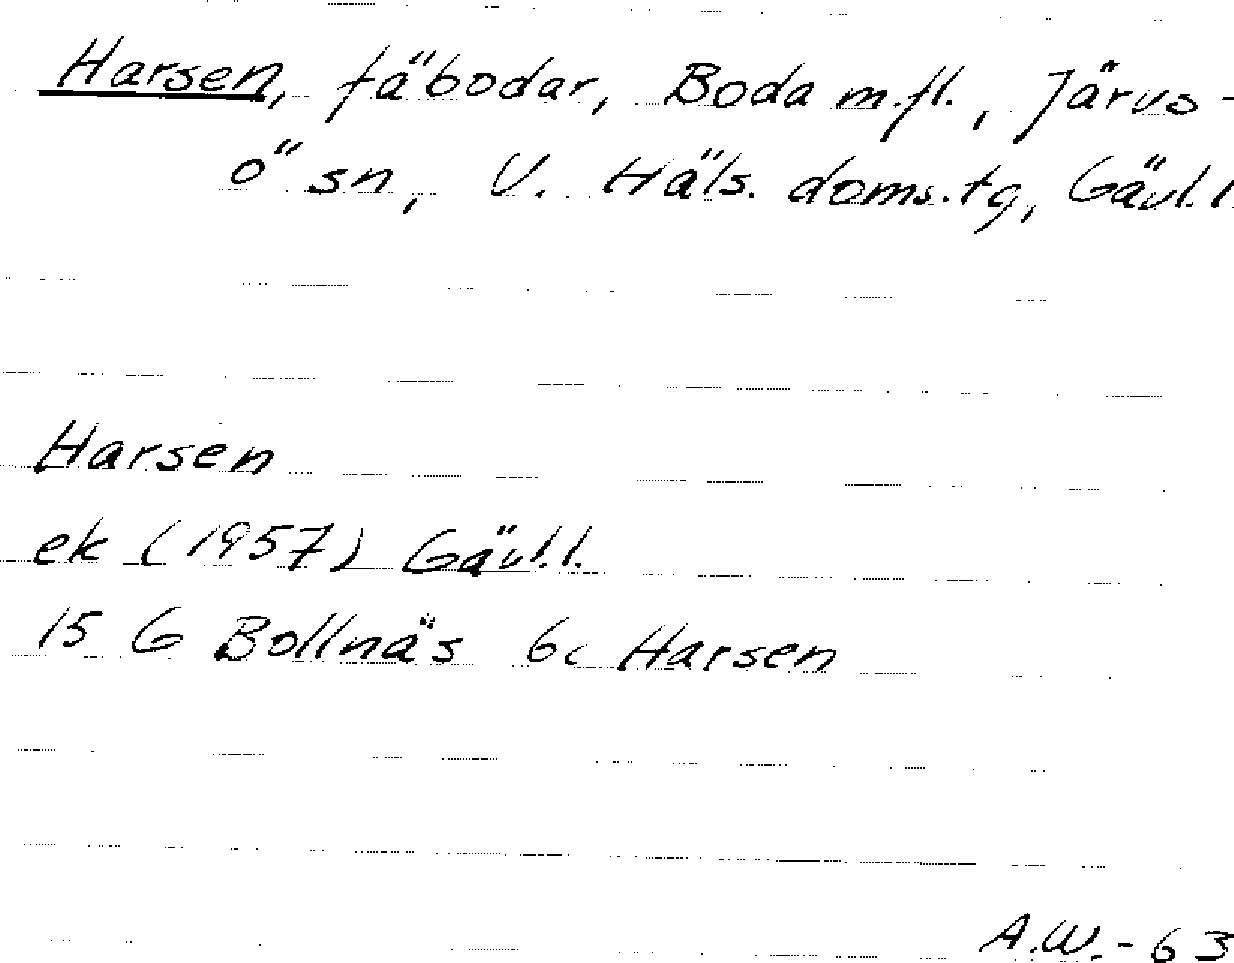 Harsen, fäbodar, Boda m.fl., Järvs-
ö sn, V. Häls. doms.tg, Gävl.l.
Harsen
ek (1957) Gävl.l.
15 G Bollnäs 6c Harsen
A.W.-63